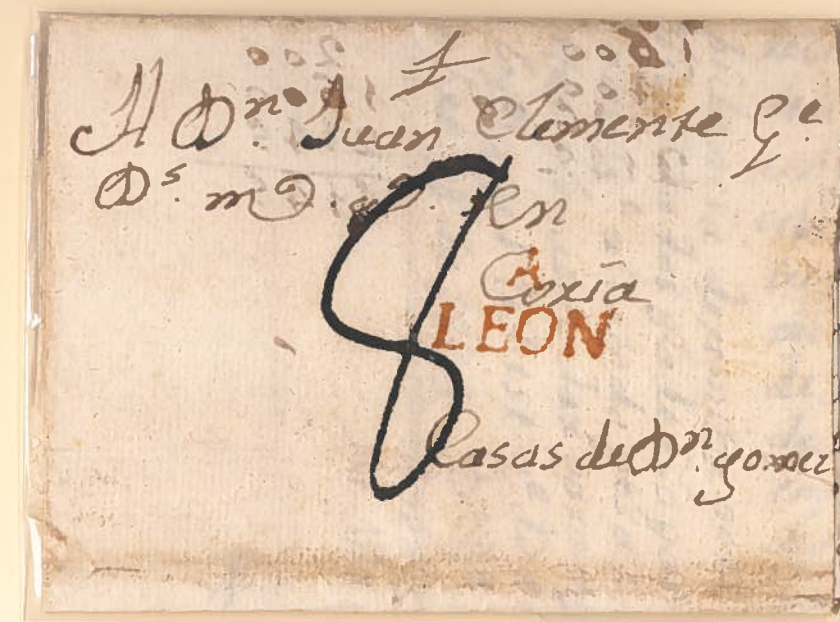 A Dn. Juan Clemente Ge.
Ds. m en
8
Coria
A
LEON
Casas de Dn. gomez